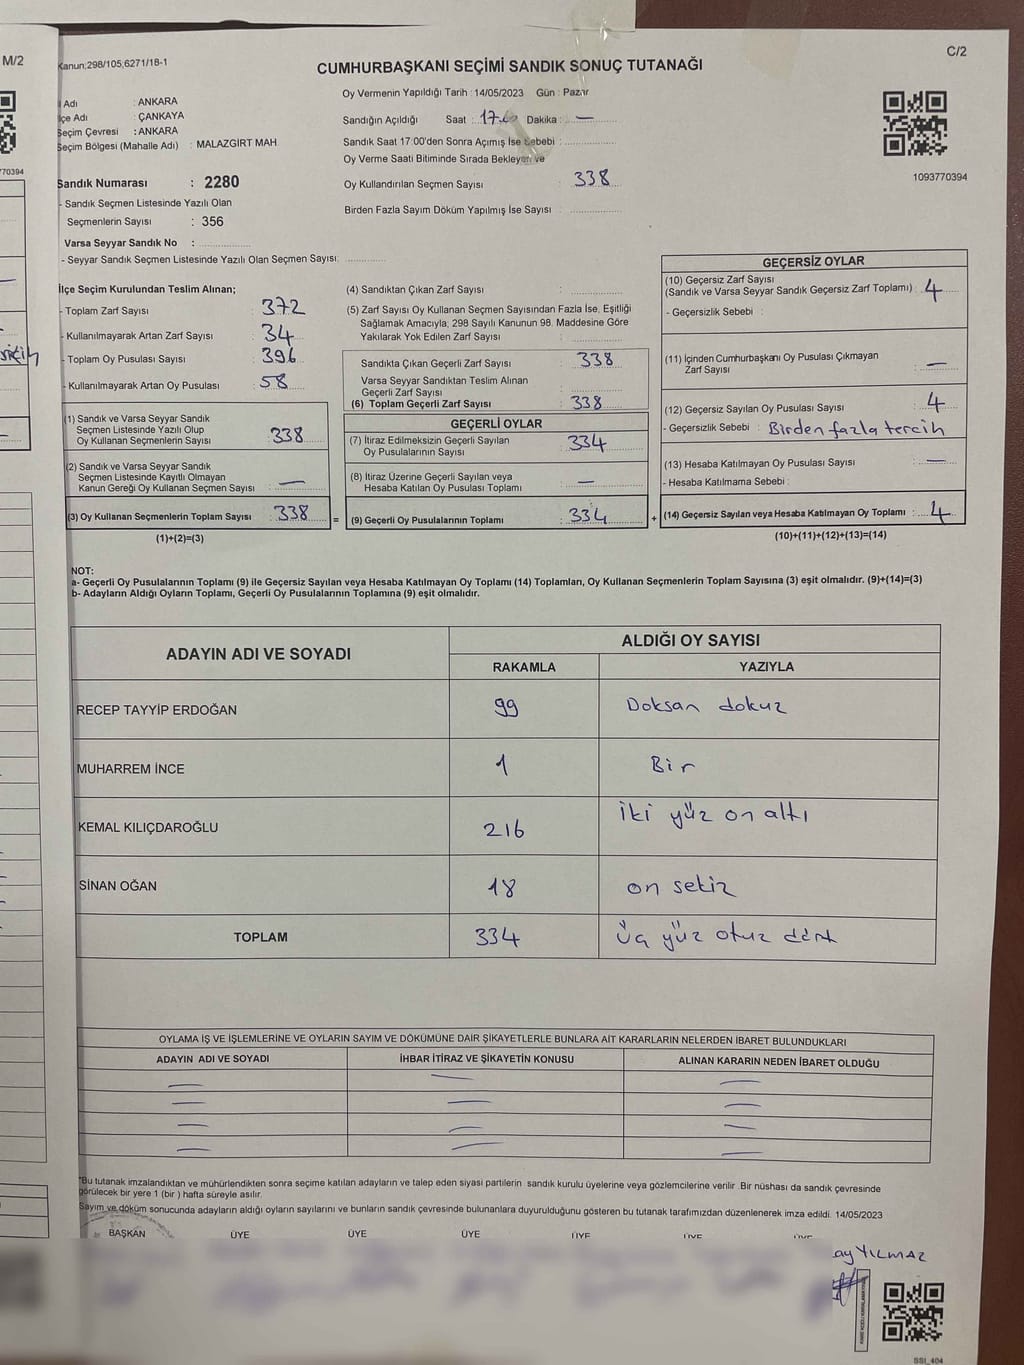 M/2
C/2
Kanun;298/105;6271/18-1
CUMHURBAŞKANI SEÇİMİ SANDIK SONUÇ TUTANAĞI
Oy Vermenin Yapıldığı Tarih : 14/05/2023 Gün : Pazar
İl Adı : ANKARA
İlçe Adı : ÇANKAYA
Seçim Çevresi : ANKARA
Seçim Bölgesi (Mahalle Adı) : MALAZGİRT MAH
Sandığın Açıldığı Saat : 17.00 Dakika : —
Sandık Saat 17:00'den Sonra Açımış İse Sebebi :
Oy Verme Saati Bitiminde Sırada Bekleyen ve
Oy Kullandırılan Seçmen Sayısı 338
Birden Fazla Sayım Döküm Yapılmış İse Sayısı
770394
1093770394
Sandık Numarası : 2280
- Sandık Seçmen Listesinde Yazılı Olan
Seçmenlerin Sayısı : 356
Varsa Seyyar Sandık No :
- Seyyar Sandık Seçmen Listesinde Yazılı Olan Seçmen Sayısı:
İlçe Seçim Kurulundan Teslim Alınan;
- Toplam Zarf Sayısı : 372
- Kullanılmayarak Artan Zarf Sayısı : 34
- Toplam Oy Pusulası Sayısı : 396
- Kullanılmayarak Artan Oy Pusulası : 58
(1) Sandık ve Varsa Seyyar Sandık
Seçmen Listesinde Yazılı Olup
Oy Kullanan Seçmenlerin Sayısı : 338
(2) Sandık ve Varsa Seyyar Sandık
Seçmen Listesinde Kayıtlı Olmayan
Kanun Gereği Oy Kullanan Seçmen Sayısı : —
(3) Oy Kullanan Seçmenlerin Toplam Sayısı : 338
(1)+(2)=(3)
(4) Sandıktan Çıkan Zarf Sayısı :
(5) Zarf Sayısı Oy Kullanan Seçmen Sayısından Fazla İse, Eşitliği
Sağlamak Amacıyla; 298 Sayılı Kanunun 98. Maddesine Göre
Yakılarak Yok Edilen Zarf Sayısı :
Sandıkta Çıkan Geçerli Zarf Sayısı : 338
Varsa Seyyar Sandıktan Teslim Alınan
Geçerli Zarf Sayısı :
(6) Toplam Geçerli Zarf Sayısı : 338
GEÇERLİ OYLAR
(7) İtiraz Edilmeksizin Geçerli Sayılan
Oy Pusulalarının Sayısı : 334
(8) İtiraz Üzerine Geçerli Sayılan veya
Hesaba Katılan Oy Pusulası Toplamı : —
= (9) Geçerli Oy Pusulalarının Toplamı : 334
GEÇERSİZ OYLAR
(10) Geçersiz Zarf Sayısı
(Sandık ve Varsa Seyyar Sandık Geçersiz Zarf Toplamı) : 4
- Geçersizlik Sebebi :
(11) İçinden Cumhurbaşkanı Oy Pusulası Çıkmayan
Zarf Sayısı : —
(12) Geçersiz Sayılan Oy Pusulası Sayısı : 4
- Geçersizlik Sebebi : Birden fazla tercih
(13) Hesaba Katılmayan Oy Pusulası Sayısı : —
- Hesaba Katılmama Sebebi :
+ (14) Geçersiz Sayılan veya Hesaba Katılmayan Oy Toplamı : 4
(10)+(11)+(12)+(13)=(14)
NOT:
a- Geçerli Oy Pusulalarının Toplamı (9) ile Geçersiz Sayılan veya Hesaba Katılmayan Oy Toplamı (14) Toplamları, Oy Kullanan Seçmenlerin Toplam Sayısına (3) eşit olmalıdır. (9)+(14)=(3)
b- Adayların Aldığı Oyların Toplamı, Geçerli Oy Pusulalarının Toplamına (9) eşit olmalıdır.
ADAYIN ADI VE SOYADI ALDIĞI OY SAYISI
RAKAMLA YAZIYLA
RECEP TAYYİP ERDOĞAN 99 Doksan dokuz
MUHARREM İNCE 1 Bir
KEMAL KILIÇDAROĞLU 216 İki yüz on altı
SİNAN OĞAN 18 on sekiz
TOPLAM 334 Üç yüz otuz dört
OYLAMA İŞ VE İŞLEMLERİNE VE OYLARIN SAYIM VE DÖKÜMÜNE DAİR ŞİKAYETLERLE BUNLARA AİT KARARLARIN NELERDEN İBARET BULUNDUKLARI
ADAYIN ADI VE SOYADI İHBAR İTİRAZ VE ŞİKAYETİN KONUSU ALINAN KARARIN NEDEN İBARET OLDUĞU
— — —
— — —
— — —
— — —
*Bu tutanak imzalandıktan ve mühürlendikten sonra seçime katılan adayların ve talep eden siyasi partilerin sandık kurulu üyelerine veya gözlemcilerine verilir. Bir nüshası da sandık çevresinde
görülecek bir yere 1 (bir ) hafta süreyle asılır.
Sayım ve döküm sonucunda adayların aldığı oyların sayılarını ve bunların sandık çevresinde bulunanlara duyurulduğunu gösteren bu tutanak tarafımızdan düzenlenerek imza edildi. 14/05/2023
BAŞKAN ÜYE ÜYE ÜYE ÜYE ÜYE ÜYE
ay YILMAZ
SSI_404